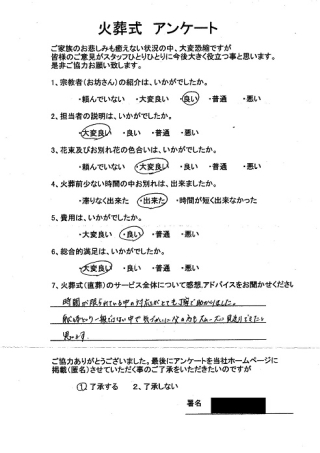 火葬式 アンケート
ご家族のお悲しみも癒えない状況の中、大変恐縮ですが
皆様のご意見がスタッフひとりひとりに今後大きく役立つ事と思います。
是非ご協力お願い致します。
1、宗教者(お坊さん)の紹介は、いかがでしたか。
・頼んでいない ・大変良い ・良い ・普通 ・悪い
2、担当者の説明は、いかがでしたか。
・大変良い ・良い ・普通 ・悪い
3、花束及びお別れ花の色合いは、いかがでしたか。
・頼んでいない ・大変良い ・良い ・普通 ・悪い
4、火葬前少ない時間の中お別れは、出来ましたか。
・滞りなく出来た ・出来た ・時間が短く出来なかった
5、費用は、いかがでしたか。
・大変良い ・良い ・普通 ・悪い
6、総合的満足は、いかがでしたか。
・大変良い ・良い ・普通 ・悪い
7、火葬式(直葬)のサービス全体について感想、アドバイスをお聞かせください
時間が限られている中の対応がとても丁寧で助かりました。
思います。
ご協力ありがとうございました。最後にアンケートを当社ホームページに
掲載(匿名)させていただく事のご了承をいただきたいのですが
1、了承する 2、了承しない
署名